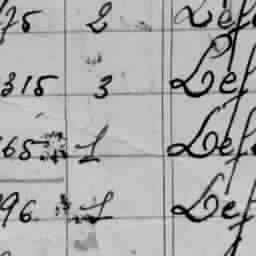 75 2 Def
315 3 Def
65 1 Def
96 1 Def